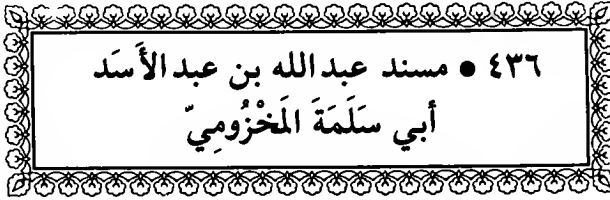 ٤٣٦ • مسند عبدالله بن عبدالأَسَد
أبي سَلَمَةَ المَخْزُوميّ